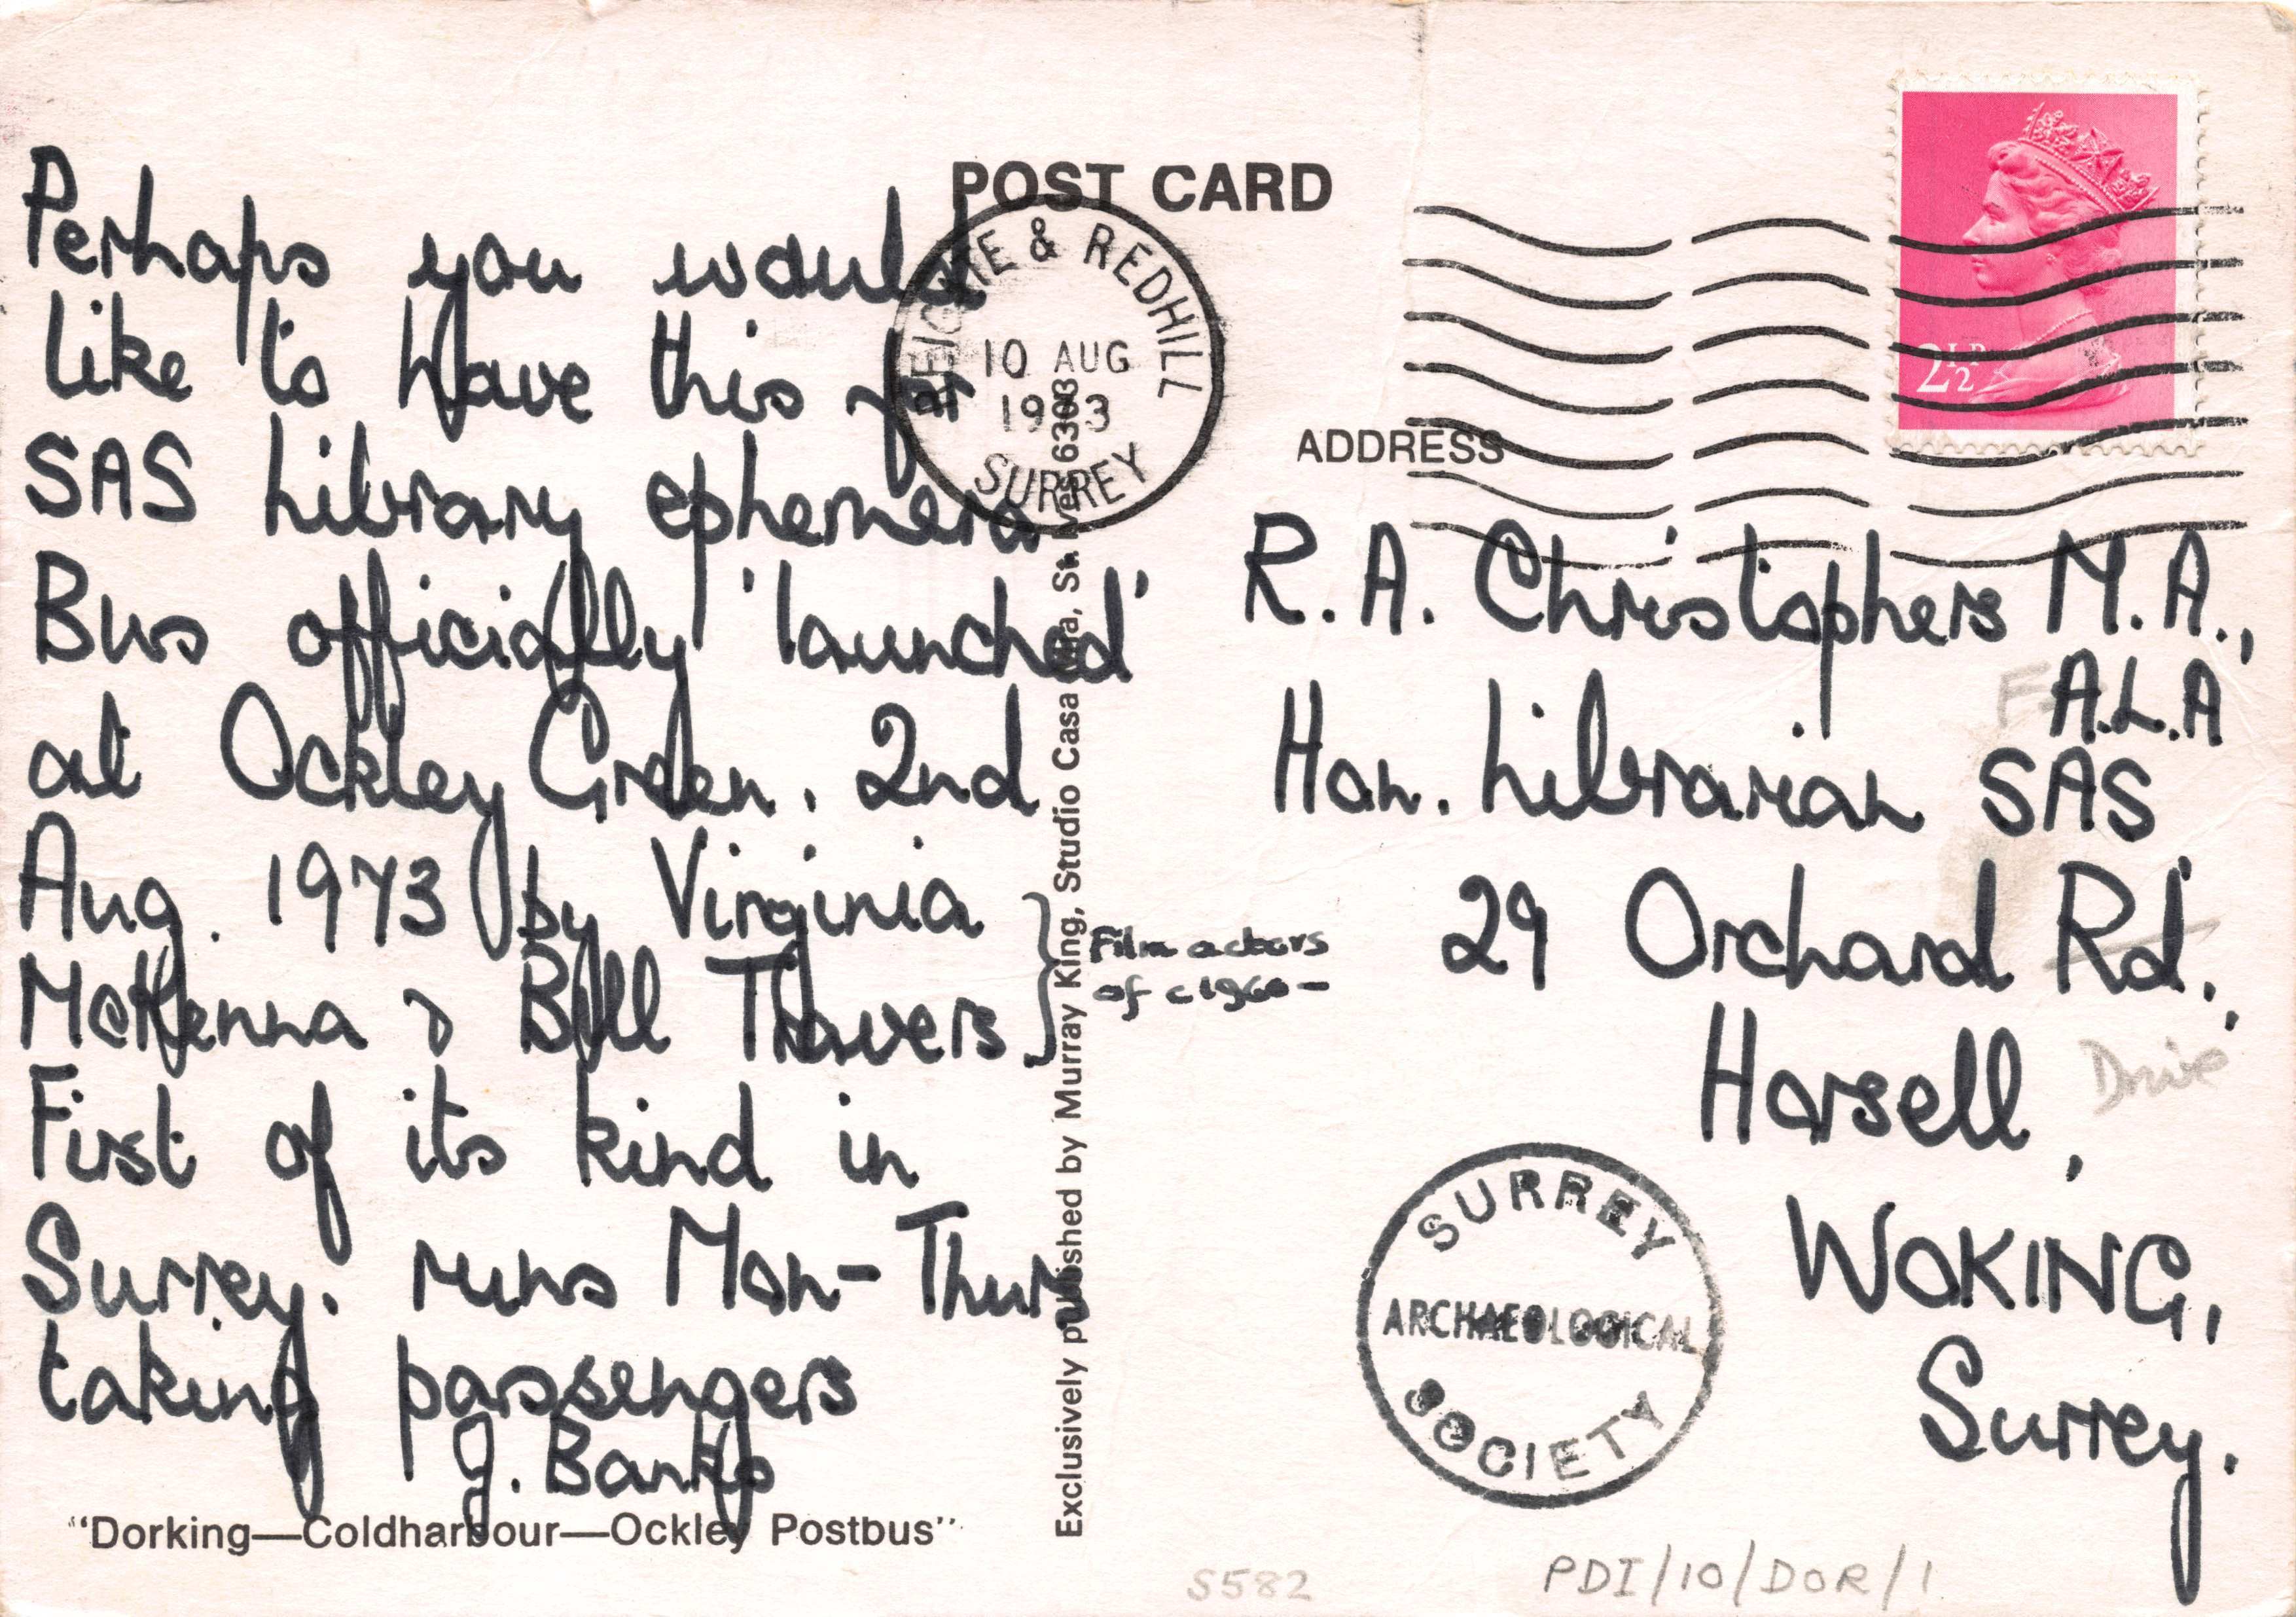 POST CARD
REIGATE & REDHILL
10 AUG
1973
SURREY
2½P
Perhaps you would
like to have this for
SAS Library ephemera
Bus officially 'launched'
at Ockley Green. 2nd
Aug. 1973 by Virginia
McKenna & Bill Travers
Film actors
of c1960-
First of its kind in
Surrey. runs Mon-Thurs
taking passengers
J. Banks
"Dorking—Coldharbour—Ockley Postbus"
Exclusively published by Murray King, Studio Casa Mia, St. Ives 6303
ADDRESS
R. A. Christophers M.A.,
F. A.L.A
Hon. Librarian SAS
29 Orchard Rd.,
Drive
Horsell,
WOKING,
Surrey.
SURREY
ARCHAEOLOGICAL
SOCIETY
S582
PDI/10/DOR/1